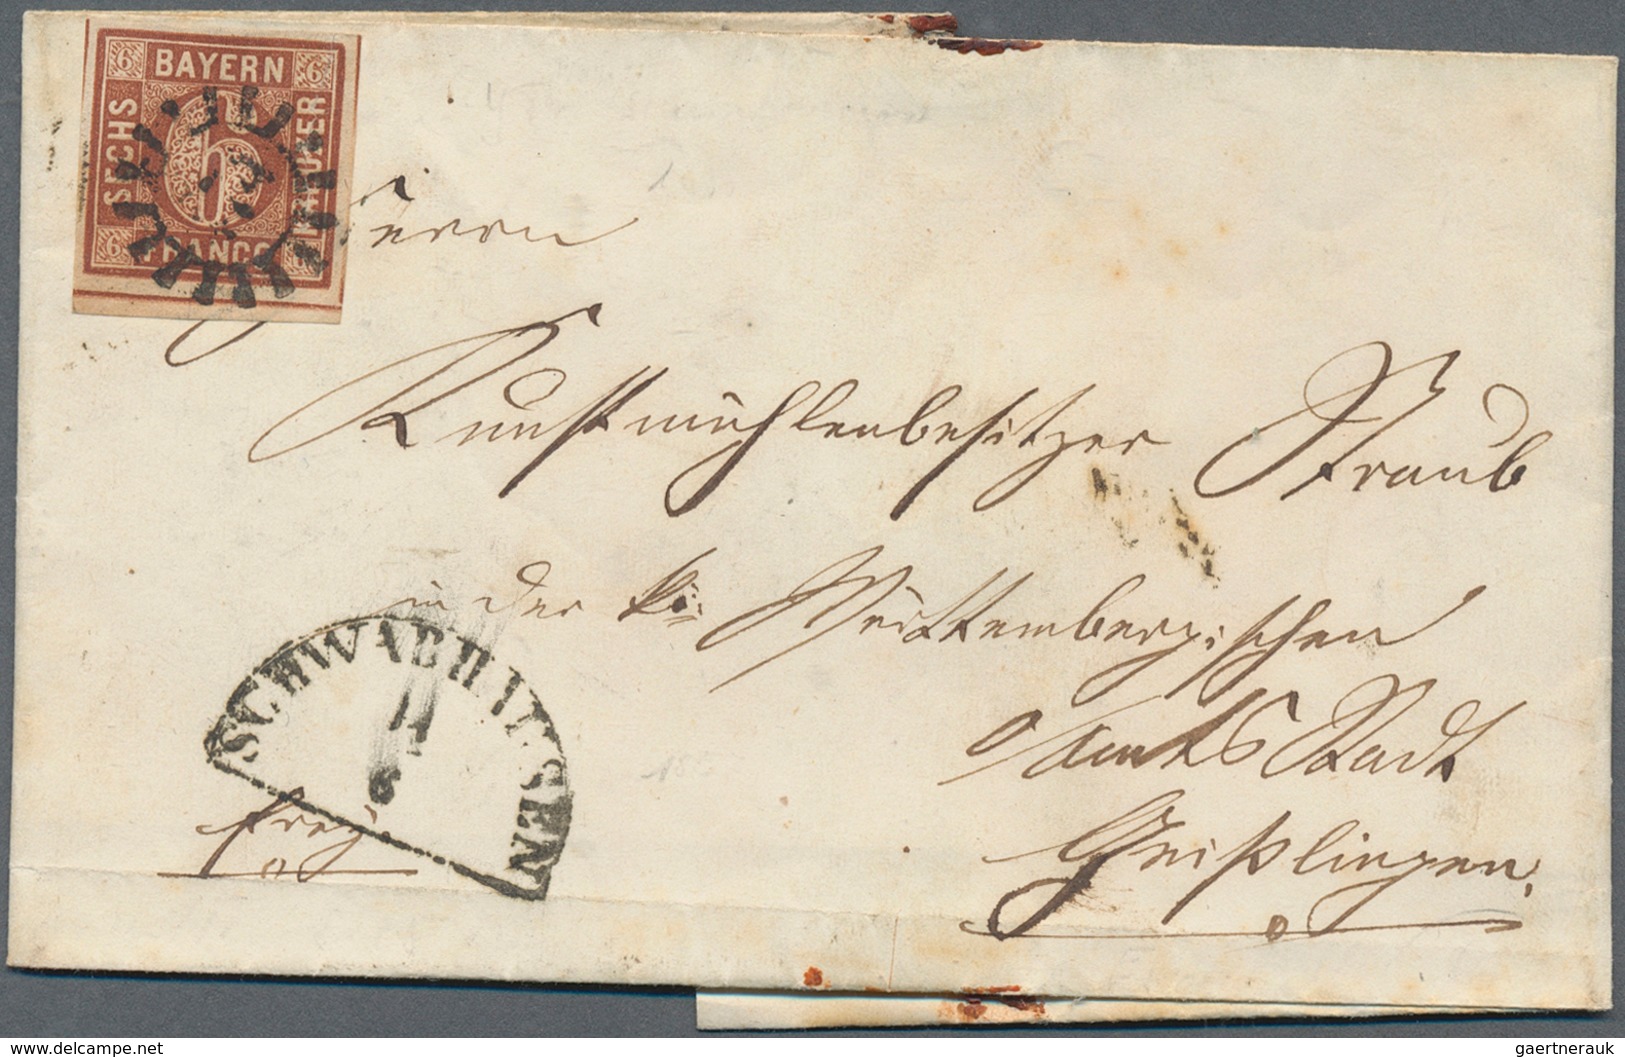 6 BAYERN 6
SECHS 6 KREUZER
6 FRANCO
Herrn
Kunstmühlenbesitzer Straub
in der Württembergischen
Stadt
Geißlingen.
SCHWABHAUSEN
6
frey.
delcampe.net
gaertnerauk